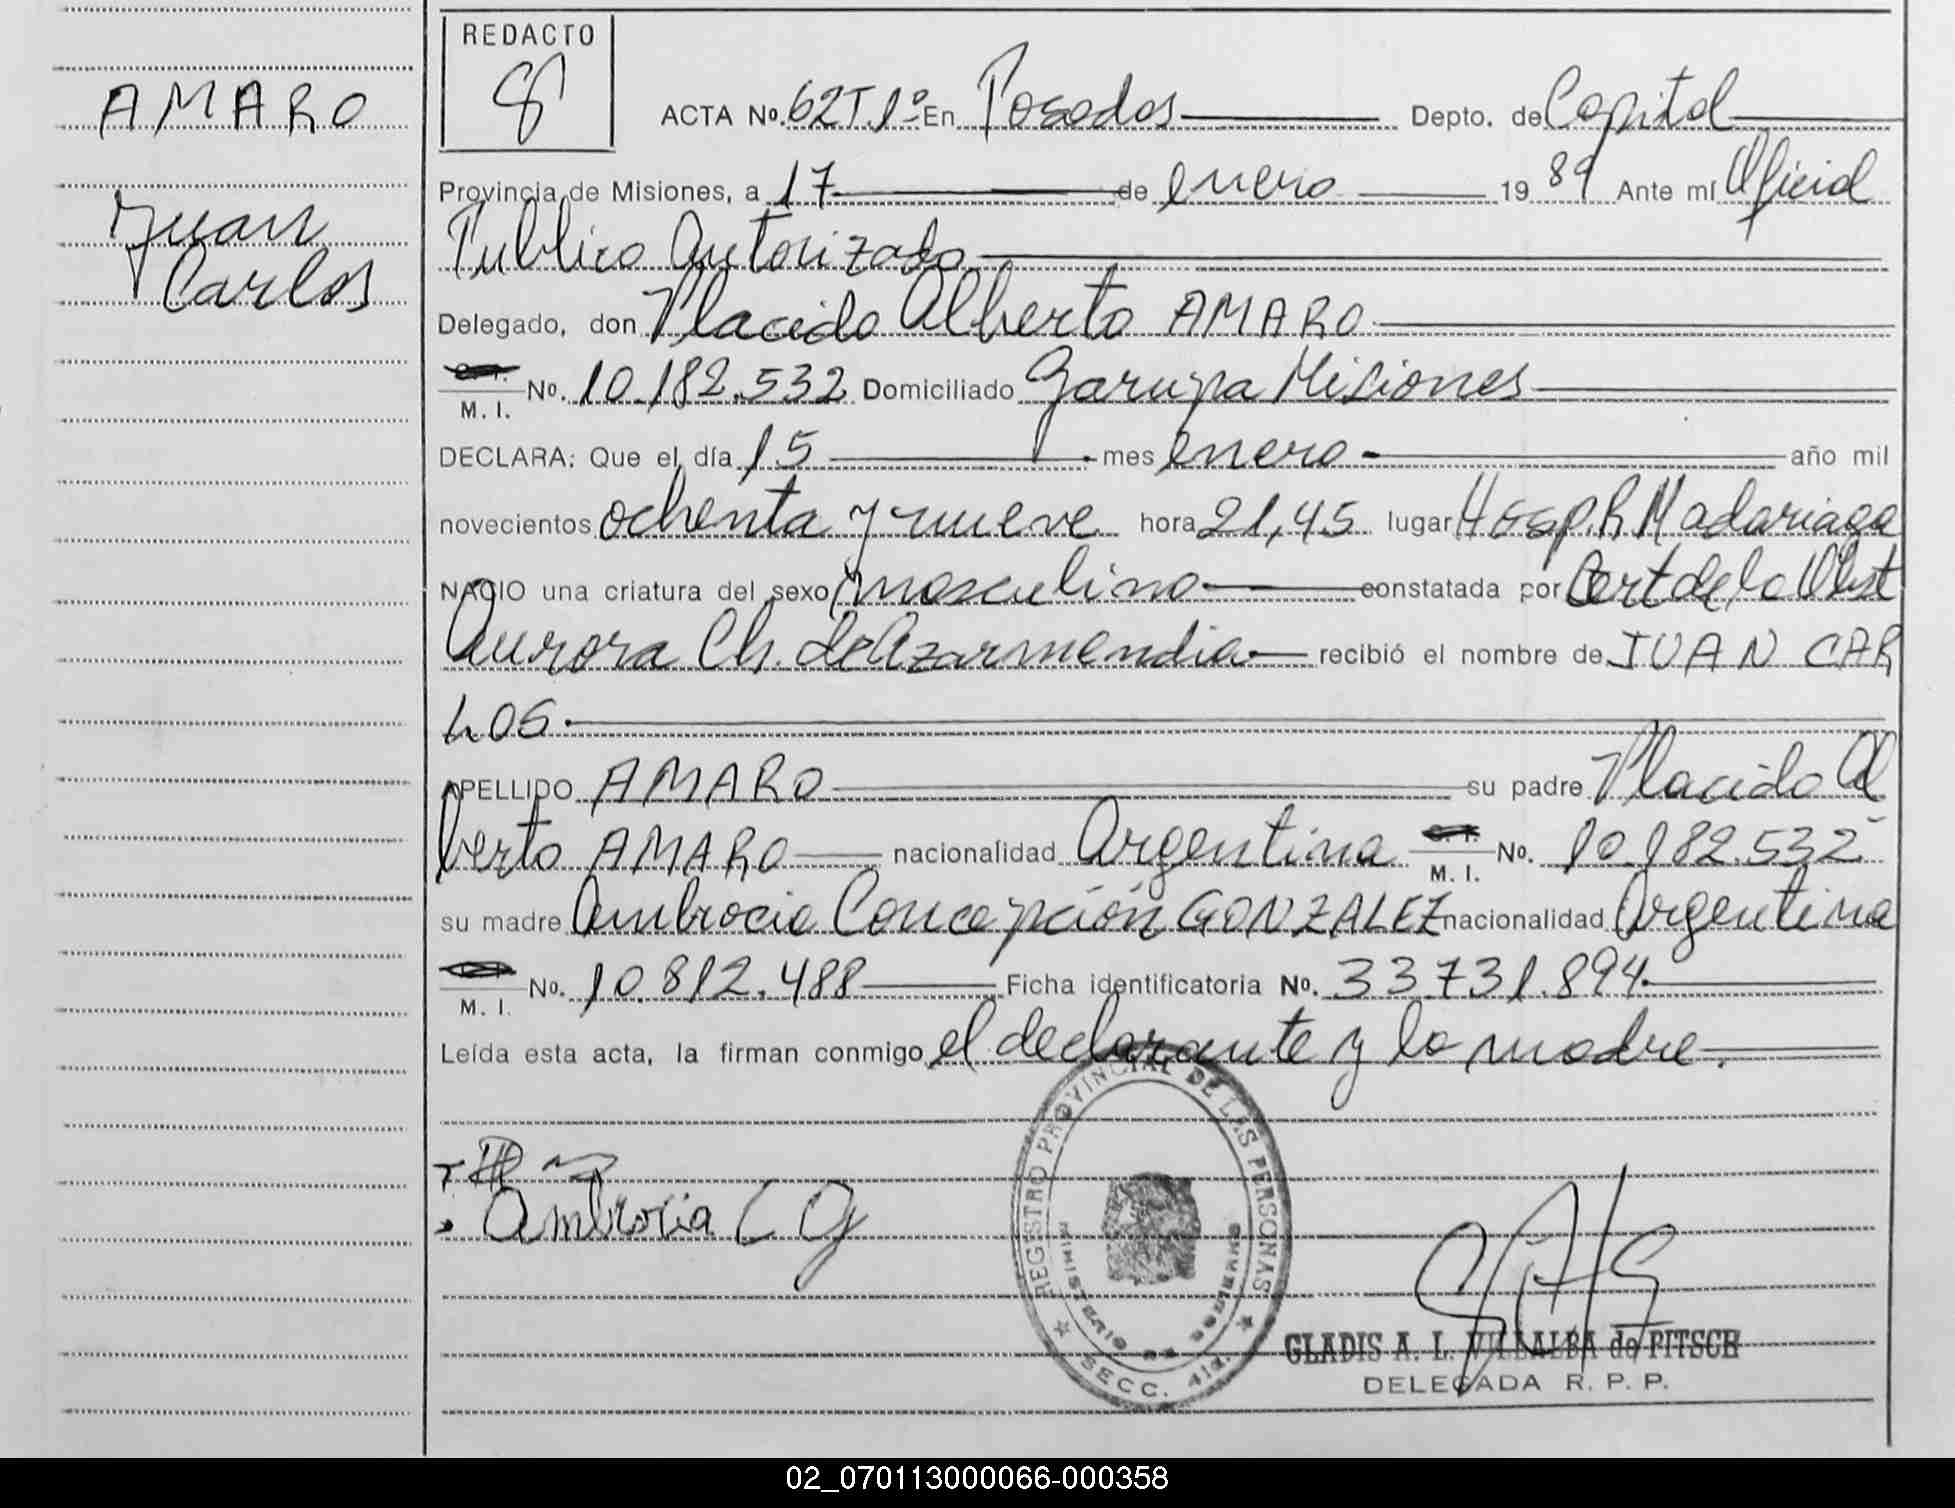 AMARO
Juan
Carlos
REDACTO
ACTA Nº. 62T.1º En Posadas Depto. de Capital
Provincia de Misiones, a 17 de enero 1989 Ante mí Oficial
Publico Autorizado
Delegado, don Placido Alberto AMARO
M. I. No. 10.182.532 Domiciliado Garupa Misiones
DECLARA: Que el día 15 mes enero año mil
novecientos ochenta y nueve hora 21,45 lugar Hosp. R Madariaga
NACIO una criatura del sexo masculino constatada por Cert de la Obst
Aurora Ch. de Azarmendia recibió el nombre de JUAN CAR
LOS
APELLIDO AMARO su padre Placido Al
berto AMARO nacionalidad Argentina M. I. No. 10.182.532
su madre Ambrocia Concepción GONZALEZ nacionalidad Argentina
M. I. No. 10.812.488 Ficha identificatoria No. 33.731.894
Leída esta acta, la firman conmigo el declarante y la madre.
Ambrocia C G
REGISTRO PROVINCIAL DE LAS PERSONAS
MINISTERIO DE GOBIERNO
SECC. 41a.
GLADIS A. L. VILLALBA de PITSCH
DELEGADA R. P. P.
02_070113000066-000358